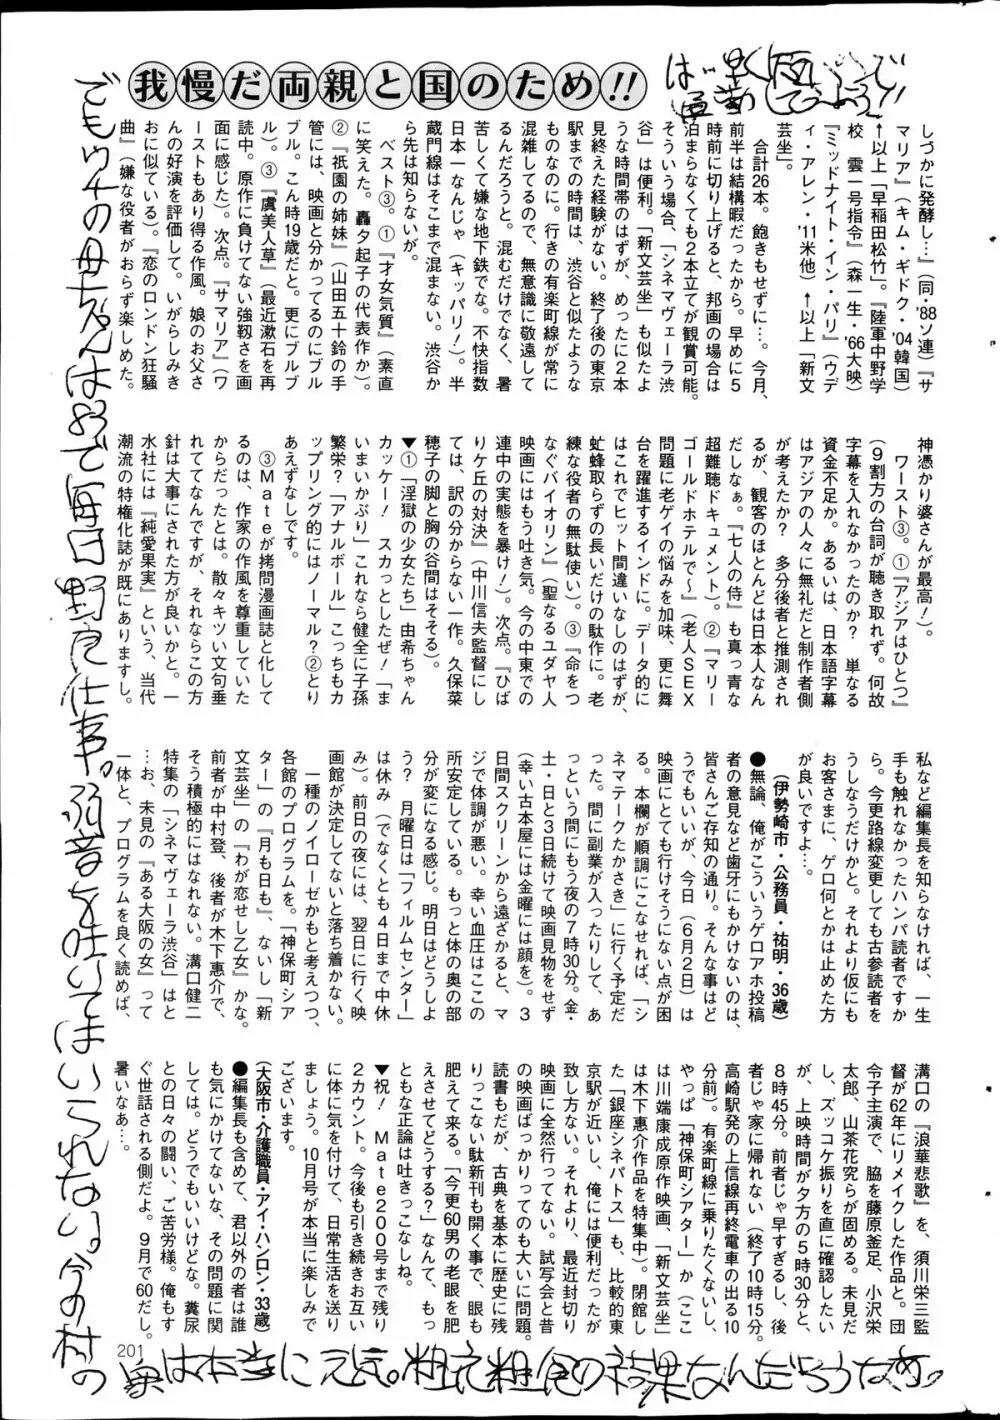 我慢だ両親と国のため!!
しづかに発酵し…』(同・'88ソ連)『サ
マリア』(キム・ギドク・'04韓国)
↑以上「早稲田松竹」。『陸軍中野学
校　雲一号指令』(森一生・'66大映)
『ミッドナイト・イン・パリ』(ウデ
ィ・アレン・'11米他)↑以上「新文
芸坐」。
合計26本。飽きもせずに…。今月、
前半は結構暇だったから。早めに5
時前に切り上げると、邦画の場合は
泊まらなくても2本立てが観賞可能。
そういう場合、「シネマヴェーラ渋
谷」は便利。「新文芸坐」も似たよ
うな時間帯のはずが、めったに2本
見終えた経験がない。終了後の東京
駅までの時間は、渋谷と似たような
ものなのに。行きの有楽町線が常に
混雑してるので、無意識に敬遠して
るんだろうと。混むだけでなく、暑
苦しくて嫌な地下鉄でな。不快指数
日本一なんじゃ(キッパリ!)。半
蔵門線はそこまで混まない。渋谷か
ら先は知らないが。
ベスト③。①『才女気質』(素直
に笑えた。轟夕起子の代表作か)。
②『祇園の姉妹』(山田五十鈴の手
管には、映画と分かってるのにブル
ブル。こん時19歳だと。更にブルブ
ル)。③『虞美人草』(最近漱石を再
読中。原作に負けてない強靱さを画
面に感じた)。次点。『サマリア』(ワ
ーストもあり得る作風。娘のお父さ
んの好演を評価して。いがらしみき
おに似ている)。『恋のロンドン狂騒
曲』(嫌な役者がおらず楽しめた。
神憑かり婆さんが最高!)。
ワースト③。①『アジアはひとつ』
(9割方の台詞が聴き取れず。何故
字幕を入れなかったのか?　単なる
資金不足か。あるいは、日本語字幕
はアジアの人々に無礼だと制作者側
が考えたか?　多分後者と推測され
るが、観客のほとんどは日本人なん
だしなぁ。『七人の侍』も真っ青な
超難聴ドキュメント)。②『マリー
ゴールドホテルで〜』(老人SEX
問題に老ゲイの悩みを加味、更に舞
台を躍進するインドに。データ的に
はこれでヒット間違いなしのはずが、
虻蜂取らずの長いだけの駄作に。老
練な役者の無駄使い)。③『命をつ
なぐバイオリン』(聖なるユダヤ人
映画にはもう吐き気。今の中東での
連中の実態を暴け!)。次点。『ひば
りケ丘の対決』(中川信夫監督にし
ては、訳の分からない一作。久保菜
穂子の脚と胸の谷間はそそる)。
▼①「淫獄の少女たち」由希ちゃん
カッケー!　スカっとしたぜ!「ま
いまいかぶり」これなら健全に子孫
繁栄?「アナルボール」こっちもカ
ップリング的にはノーマル?②とり
あえずなしです。
③Mateが拷問漫画誌と化して
るのは、作家の作風を尊重していた
からだったとは。散々キツい文句垂
れててなんですが、それならこの方
針は大事にされた方が良いかと。一
水社には『純愛果実』という、当代
潮流の特権化誌が既にありますし。
私など編集長を知らなければ、一生
手も触れなかったハンパ読者ですか
ら。今更路線変更しても古参読者を
うしなうだけかと。それより仮にも
お客さまに、ゲロ何とかは止めた方
が良いですよ…。
(伊勢崎市・公務員・祐明・36歳)
●無論、俺がこういうゲロアホ投稿
者の意見など歯牙にもかけないのは、
皆さんご存知の通り。そんな事はど
うでもいいが、今日(6月2日)は
映画にとても行けそうにない点が困
る。本欄が順調にこなせれば、「シ
ネマテークたかさき」に行く予定だ
った。間に副業が入ったりして、あ
っという間にもう夜の7時30分。金・
土・日と3日続けて映画見物をせず
(幸い古本屋には金曜には顔を)。3
日間スクリーンから遠ざかると、マ
ジで体調が悪い。幸い血圧はここの
所安定している。もっと体の奥の部
分が変になる感じ。明日はどうしよ
う?　月曜日は「フィルムセンター」
は休み(でなくとも4日まで中休
み)。前日の夜には、翌日に行く映
画館が決定してないと落ち着かない。
一種のノイローゼかもと考えつつ、
各館のプログラムを。「神保町シア
ター」の『月も日も』、ないし「新
文芸坐」の『わが恋せし乙女』かな。
前者が中村登、後者が木下惠介で、
そう積極的にはなれない。溝口健二
特集の「シネマヴェーラ渋谷」はと
…お、未見の『ある大阪の女』って
一体と、プログラムを良く読めば、
溝口の『浪華悲歌』を、須川栄三監
督が62年にリメイクした作品と。団
令子主演で、脇を藤原釜足、小沢栄
太郎、山茶花究らが固める。未見だ
し、ズッコケ振りを直に確認したい
が、上映時間が夕方の5時30分と、
8時45分。前者じゃ早すぎるし、後
者じゃ家に帰れない(終了10時15分。
高崎駅発の上信線再終電車の出る10
分前)。有楽町線に乗りたくないし、
やっぱ「神保町シアター」か(ここ
は川端康成原作映画、「新文芸坐」
は木下惠介作品を特集中)。閉館し
た「銀座シネパトス」も、比較的東
京駅が近いし、俺には便利だったが
致し方ない。それより、最近封切り
映画に全然行ってない。試写会と昔
の映画ばっかりってのも大いに問題。
読書もだが、古典を基本に歴史に残
りっこない駄新刊も開く事で、眼も
肥えて来る。「今更60男の老眼を肥
えさせてどうする?」なんて、もっ
ともな正論は吐きっこなしね。
▼祝!　Mate200号まで残り
2カウント。今後も引き続きお互い
に体に気を付けて、日常生活を送り
ましょう。10月号が本当に楽しみで
ございます。
(大阪市・介護職員・アイ・ハンロン・33歳)
●編集長も含めて、君以外の者は誰
も気にかけてないな、その問題に関
しては。どうでもいいけどな。糞尿
との日々の闘い、ご苦労様。俺もす
ぐ世話される側だよ。9月で60だし。
暑いなあ…。
でもウチの母ちゃんは80で毎日野良仕事。弱音を吐いてはいられない。今の村の
は本当に元気。粗衣粗食の結果なんだろうなあ。
201